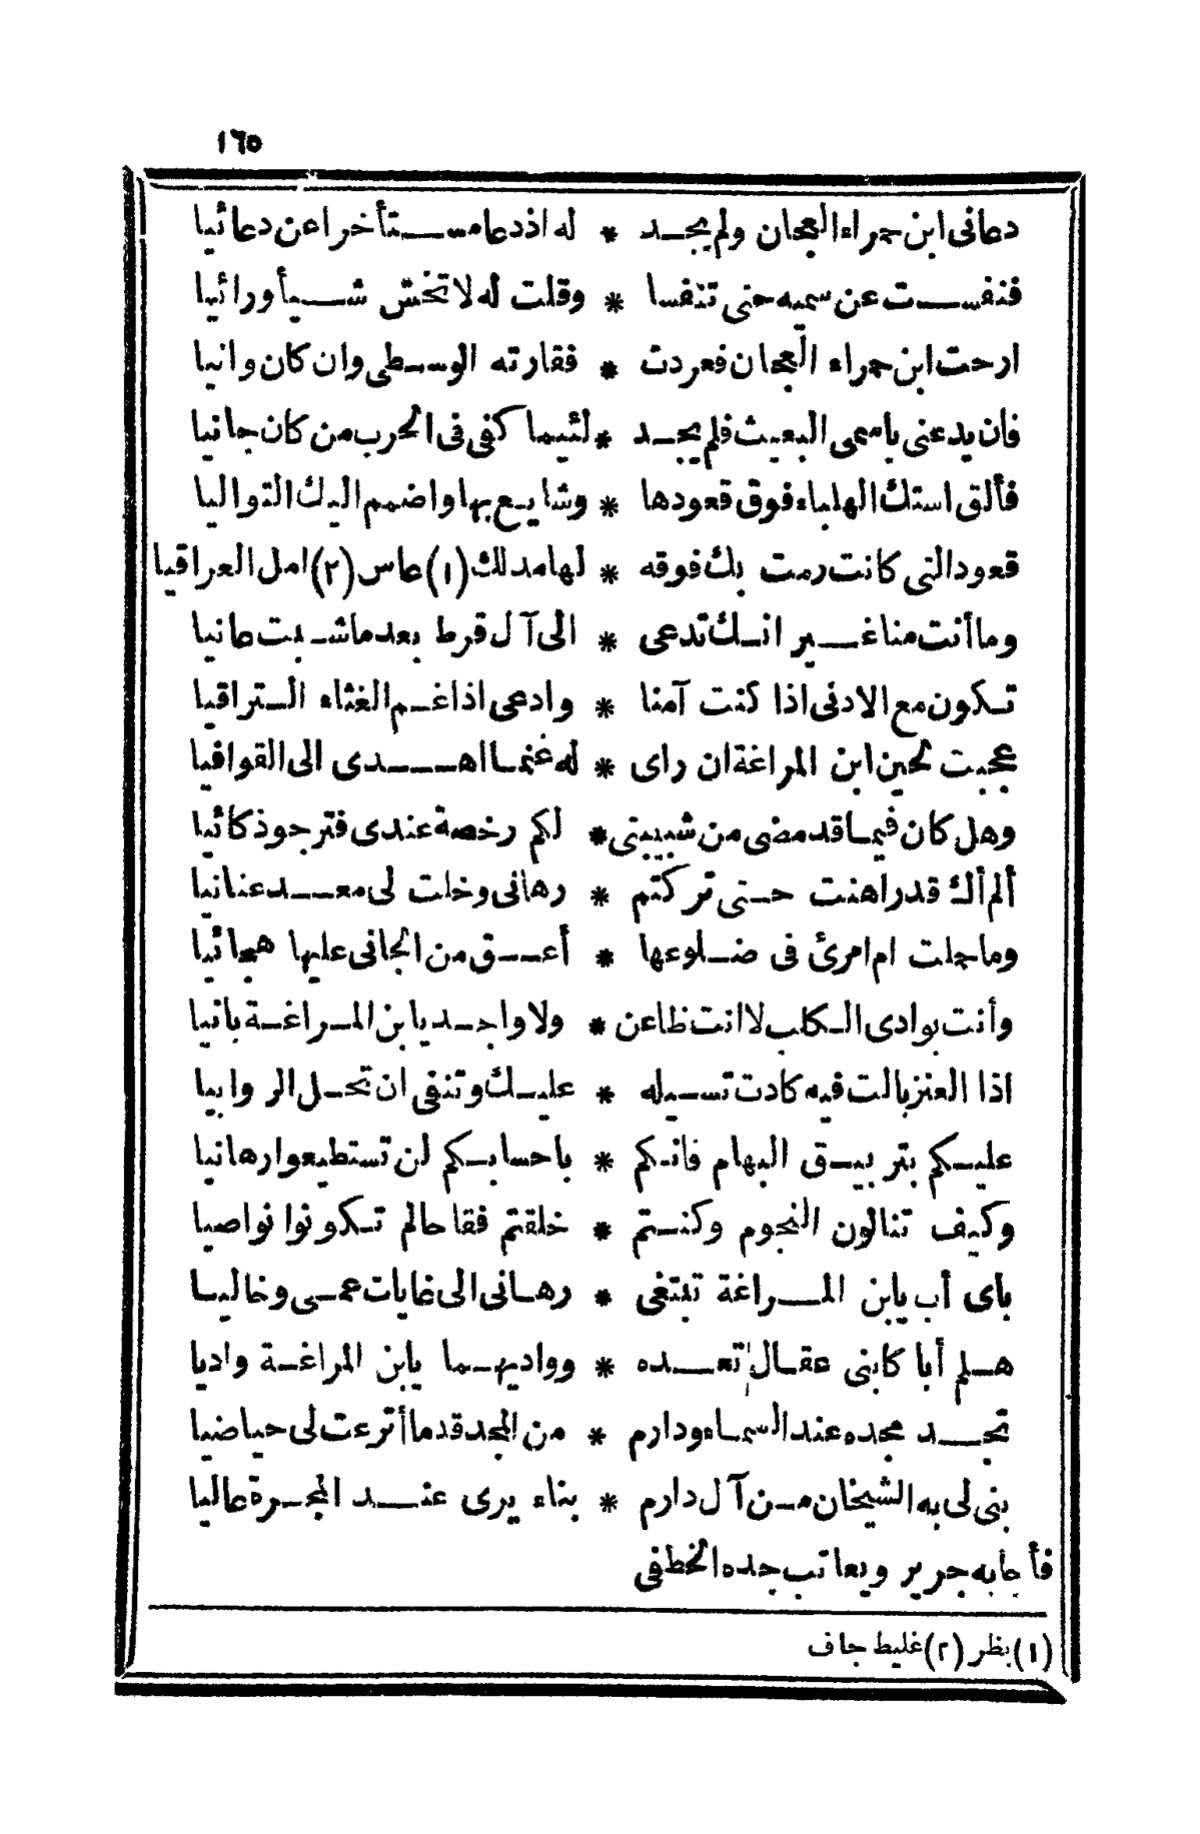 ١٦٥
دعانى ابن حمراء العجان ولم يجد * له اذ دعا مستأخرا عن دعائيا
فنفست عن سميه حتى تنفسا * وقلت له لا تخش شيأ ورائيا
ارحت ابن حمراء العجان فعردت * فقارته الوسطى وان كان وانيا
فان يدعنى باسمى البعيث فلم يجد * لئيما كفى فى الحرب من كان جانيا
فألق استك الهلباء فوق قعودها * وشايع بها واضمم اليك التواليا
قعود التى كانت رمت بك فوقه * لها مدلك (١) عاس (٢) امل العراقيا
وما أنت منا غير انك تدعى * الى آل قرط بعد ما شبت عانيا
تكون مع الادنى اذا كنت آمنا * وادعى اذا غم الغثاء التراقيا
عجبت لحين ابن المراغة ان راى * له غنما اهدى الى القوافيا
وهل كان فيما قد مضى من شبيبتى * لكم رخصة عندى فترجو ذكائيا
ألم أك قد راهنت حتى تركتم * رهانى وخلت لى معد عنانيا
وما حملت ام امرئ فى ضلوعها * أعق من الجانى عليها هجائيا
وأنت بوادى الكلب لا انت ظاعن * ولا واجد يا بن المراغة بانيا
اذا العنز بالت فيه كادت تسيله * عليك وتنفى ان تحل الروابيا
عليكم بتربيق البهام فانكم * باحسابكم لن تستطيعوا رهانيا
وكيف تنالون النجوم وكنتم * خلقتم فقاحا لم تكونوا نواصيا
باى أب يابن المراغة تبتغى * رهانى الى غايات عمى وخاليا
هلم أبا كابنى عقال تعده * وواديهما يابن المراغة واديا
تجد مجده عند السماء ودارم * من المجد قدما أترعت لى حياضيا
بنى لى به الشيخان من آل دارم * بناء يرى عند المجرة عاليا
فأجابه جرير ويعاتب جده الخطفى
(١) بظر (٢) غليط جاف